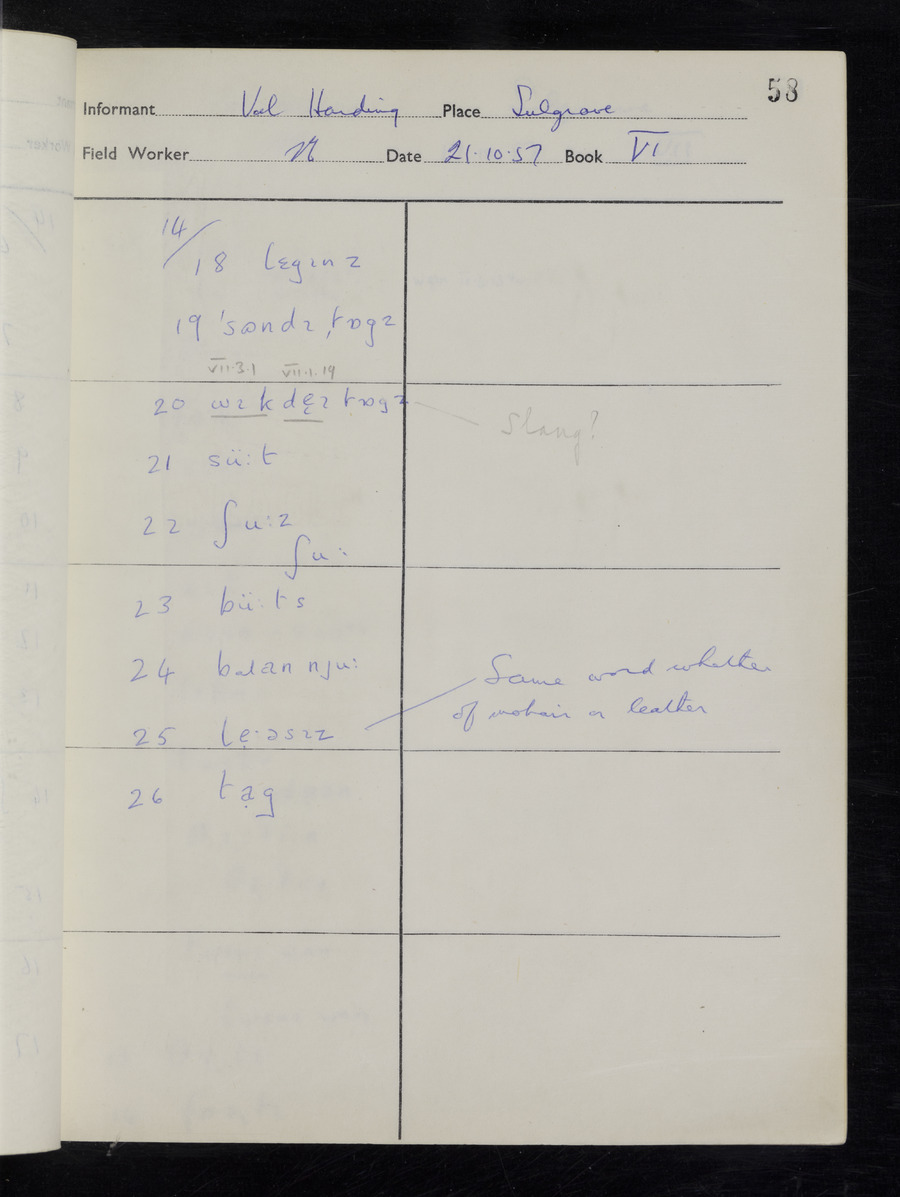 58
Informant Val Harding Place Sulgrave
Field Worker Date 21.10.57 Book VI
14/
18 lɛgɪnz
19 ˈsɒndɪˌtɒgz
VII.3.1 VII.1.19
20 wɜkdẹɪtɒgz
Slang?
21 sü:t
22 ʃu:z
ʃu:
23 bü:ts
24 baɫannju:
Same word whether
of mohair or leather
25 lẹ:əsɪz
26 tạg